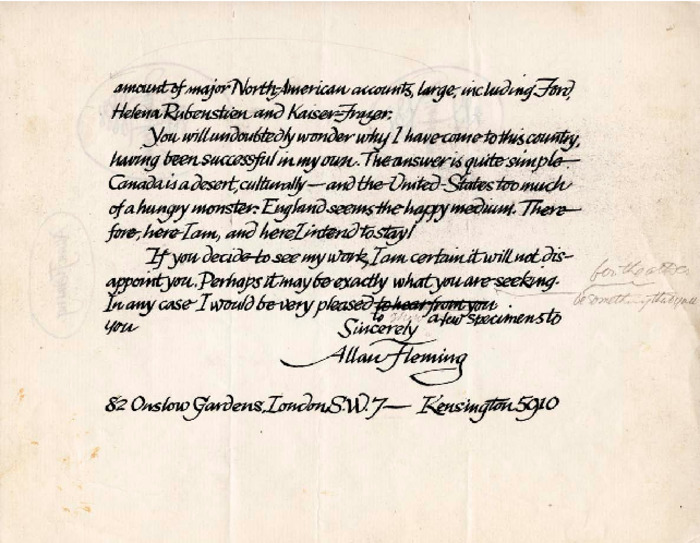 amount of major North American accounts, large, including Ford,
Helena Rubenstien and Kaiser-Frazer.
You will undoubtedly wonder why I have come to this country,
having been successful in my own. The answer is quite simple —
Canada is a desert, culturally — and the United States too much
of a hungry monster. England seems the happy medium. There
fore, here I am, and here I intend to stay!
If you decide to see my work, I am certain it will not dis-
appoint you. Perhaps it may be exactly what you are seeking.
for the
In any case I would be very pleased to hear from you
be something that you
to a few specimens to
you
Sincerely
Allan Fleming
82 Onslow Gardens, London S.W.7 — Kensington 5910